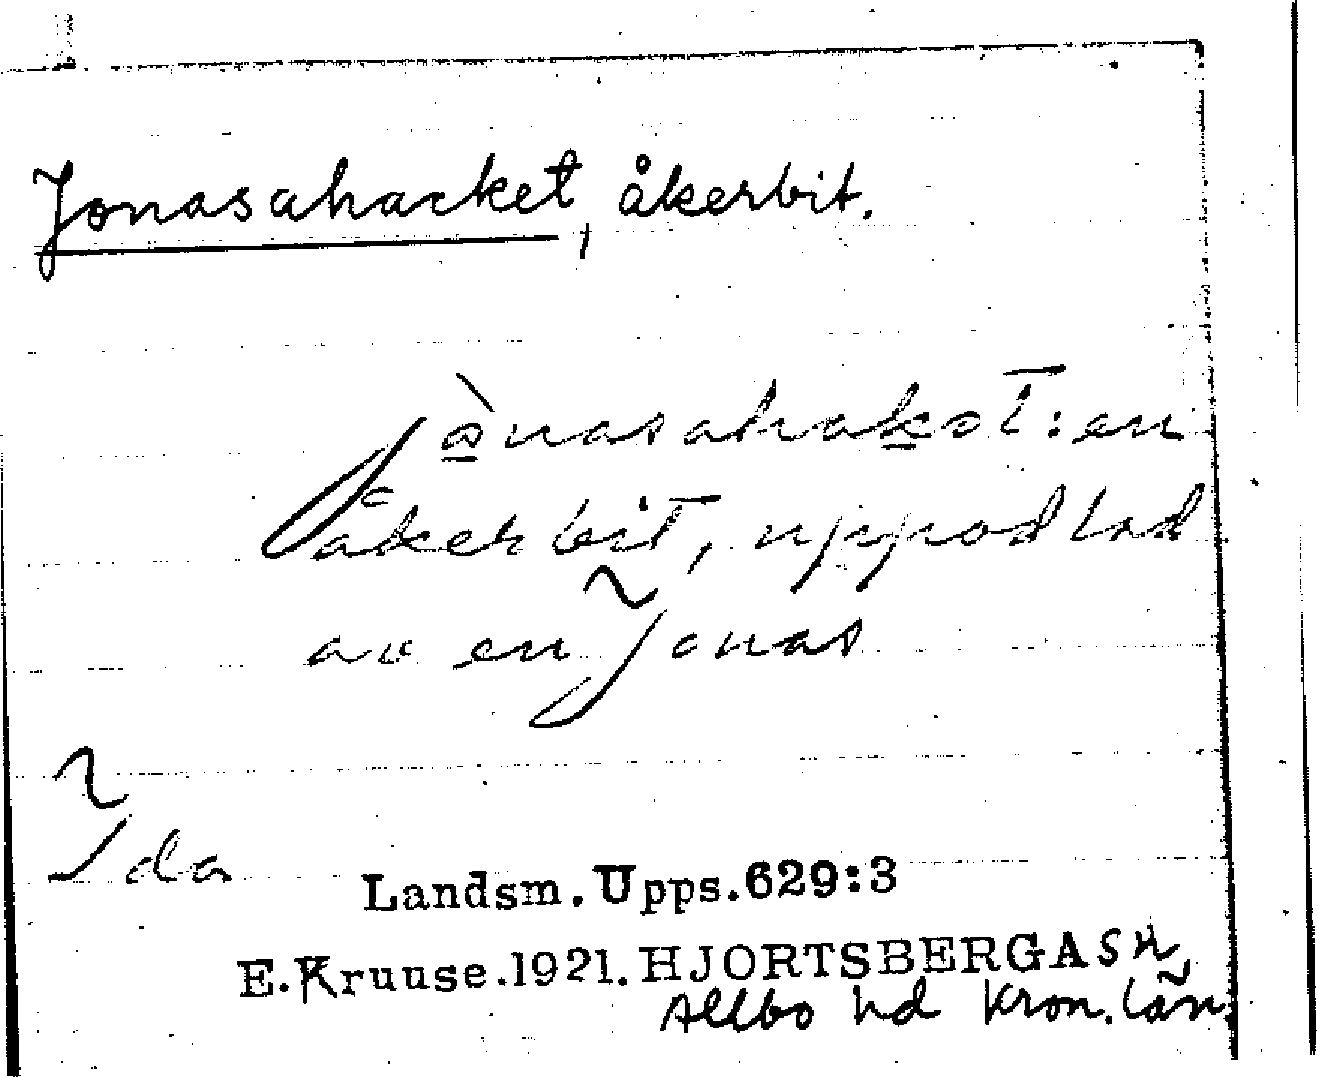 Jonasahacket, åkerbit.
jònasahakət: en
åkerbit, uppodlad
av en Jonas
Ida
Landsm. Upps. 629:3
E. Kruuse. 1921. HJORTSBERGA SN
Allbo hd Kron. län.